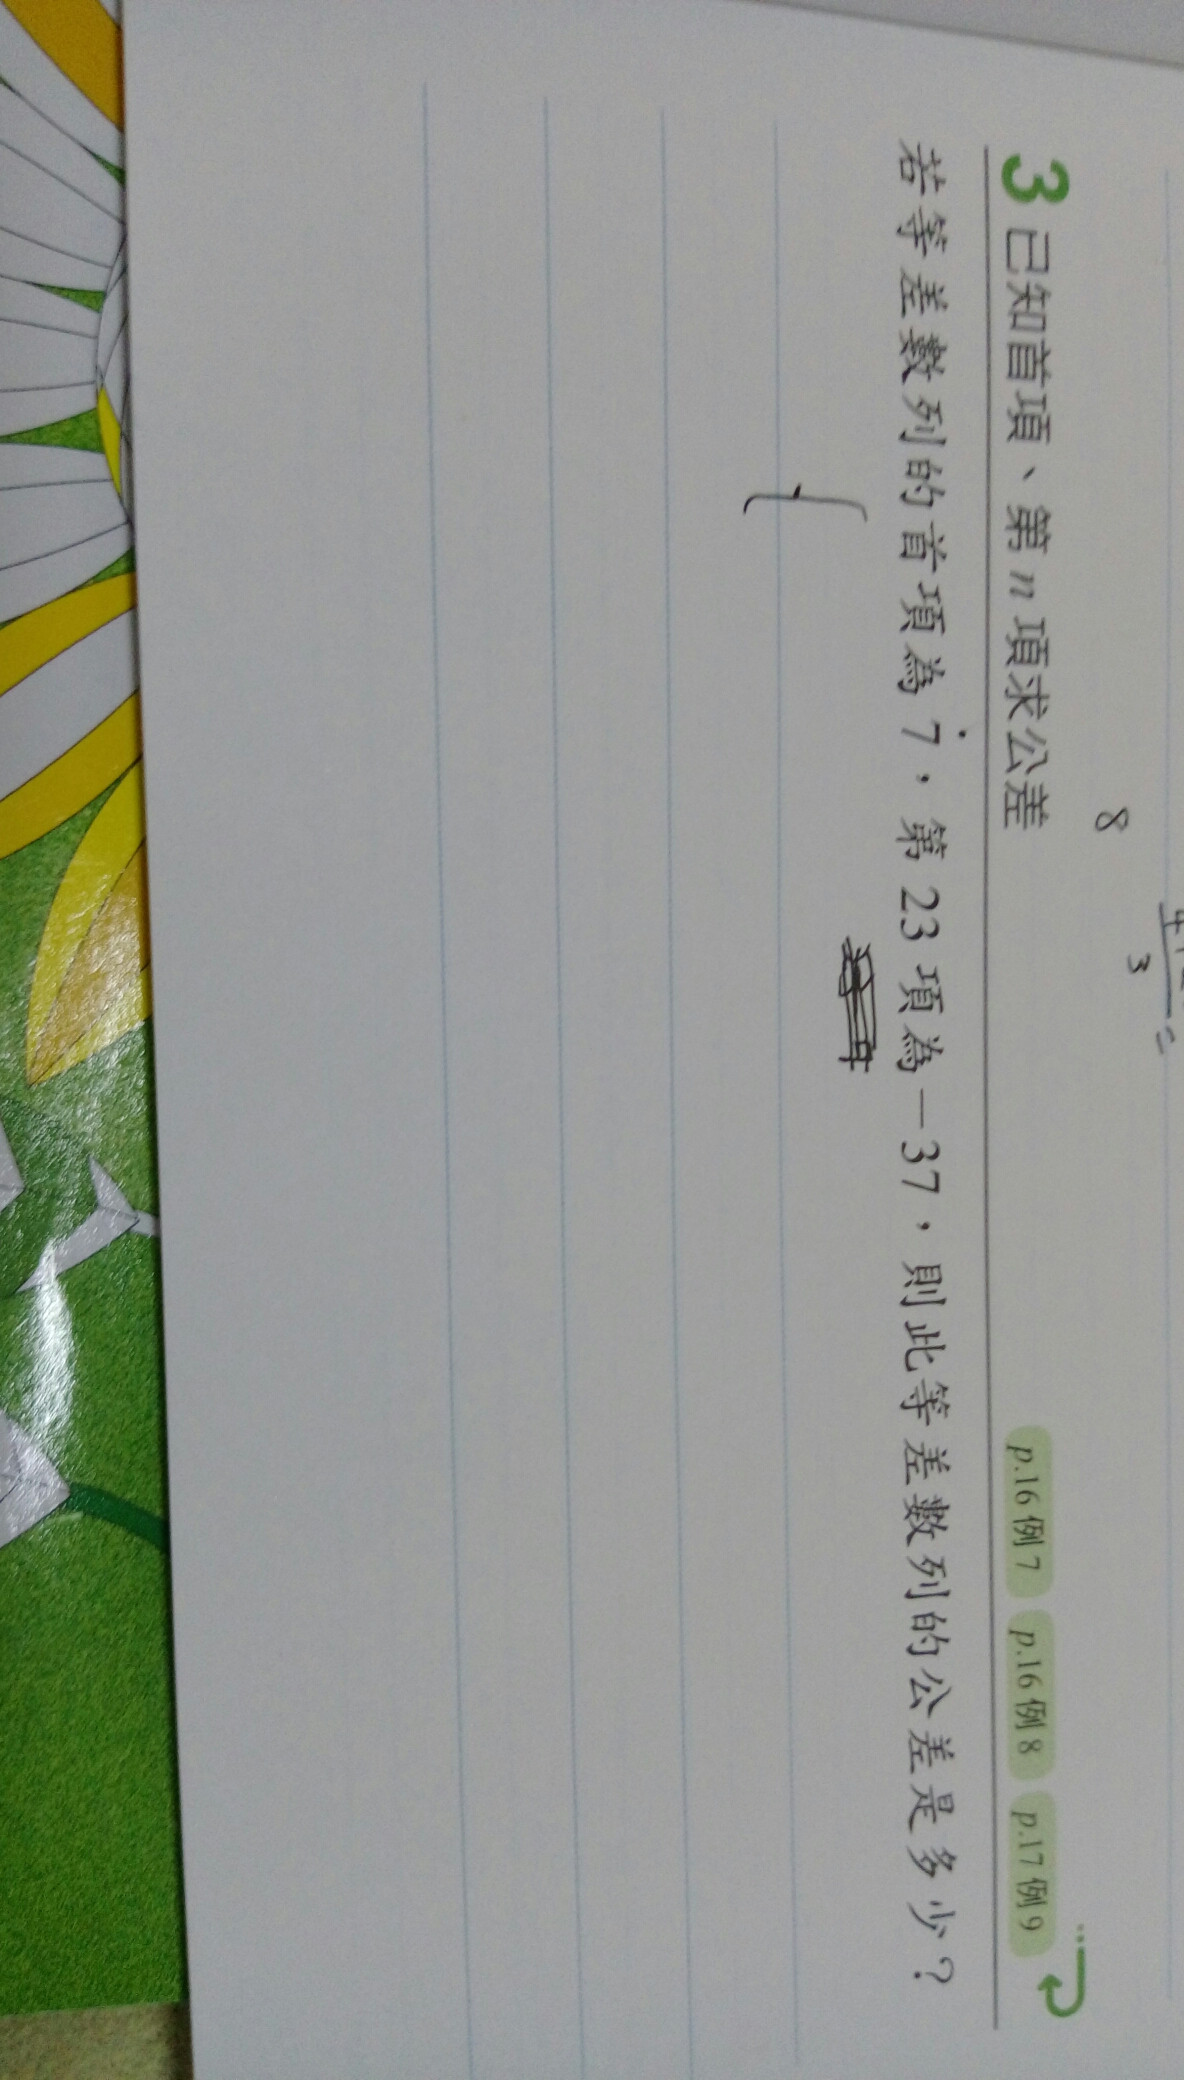 8
3
3 已知首項、第 n 項求公差 p.16 例 7 p.16 例 8 p.17 例 9
若等差數列的首項為 7，第 23 項為－37，則此等差數列的公差是多少？